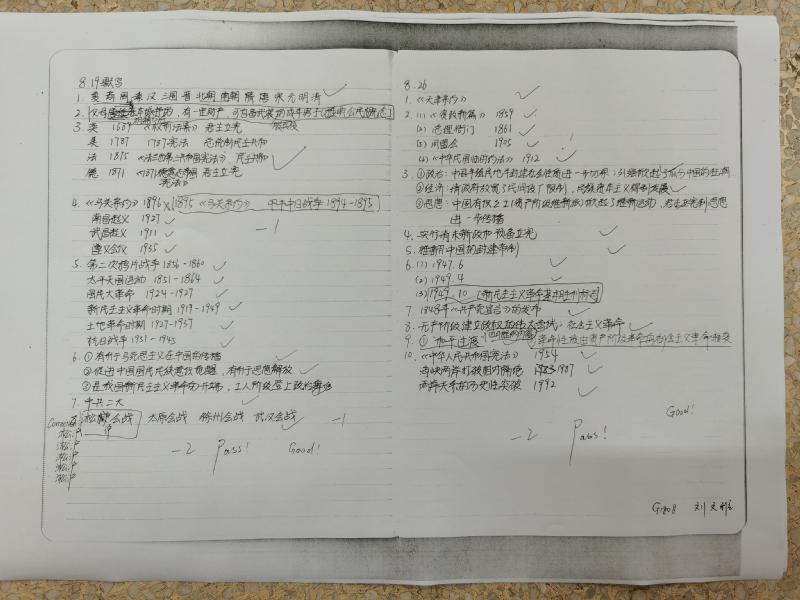 8.19默写
1. 夏 商 周 秦 汉 三国 晋 北朝 南朝 隋 唐 宋 元 明 清
2. 父母 有一定财产,可自备武装的成年男子(雅典公民概念)
3. 英 1689 《权利法案》 君主立宪
美 1787 1787宪法 总统制民主共和
法 1875 《法兰西第三共和国宪法》 民主共和
德 1871 君主立宪
宪法》
4. 《马关条约》 1896 1895 《马关条约》 甲午中日战争 1894-1895
南昌起义 1927
-1
武昌起义 1911
遵义会议 1935
5. 第二次鸦片战争 1856-1860
太平天国运动 1851-1864
国民大革命 1924-1927
新民主主义革命时期 1919-1949
土地革命时期 1927-1937
抗日战争 1931-1945
6. ①有利于马克思主义在中国的传播
②促进中国国民民族意识觉醒,有利于思想解放
③是我国新民主主义革命的开端,工人阶级登上政治舞台
7. 中共二大
8. 淞沪会战 太原会战 徐州会战 武汉会战 -1
Correction
淞沪
淞沪
淞沪
淞沪
淞沪
-2 Pass! Good!
8.26
1. 《天津条约》
2. (1) 《资政新篇》 1859
(2) 总理衙门 1861
(3) 同盟会 1905
(4) 《中华民国临时约法》 1912
3. ①政治:中国半殖民地半封建社会性质进一步加深;列强掀起了瓜分中国的狂潮
②经济:清政府放宽了民间设厂限制,民族资本主义得到发展
③思想:中国有识之士资产阶级维新派掀起了维新运动,君主立宪制思想
进一步传播
4. 实行清末新政和预备立宪
5. 推翻中国的封建帝制
6. (1) 1947.6
(2) 1949.4
(3) 1949.10 (新民主主义革命基本胜利标志)
7. 1848年《共产党宣言》的发布
8. 无产阶级建立政权的伟大尝试,社会主义革命
9. ① 和平过渡 革命性质由资产阶级革命向社会主义革命转变
10. 《中华人民共和国宪法》 1954
海峡两岸打破相对隔绝 1987
两岸关系的历史性突破 1992
Good!
-2 Pass!
G1808 刘文雅